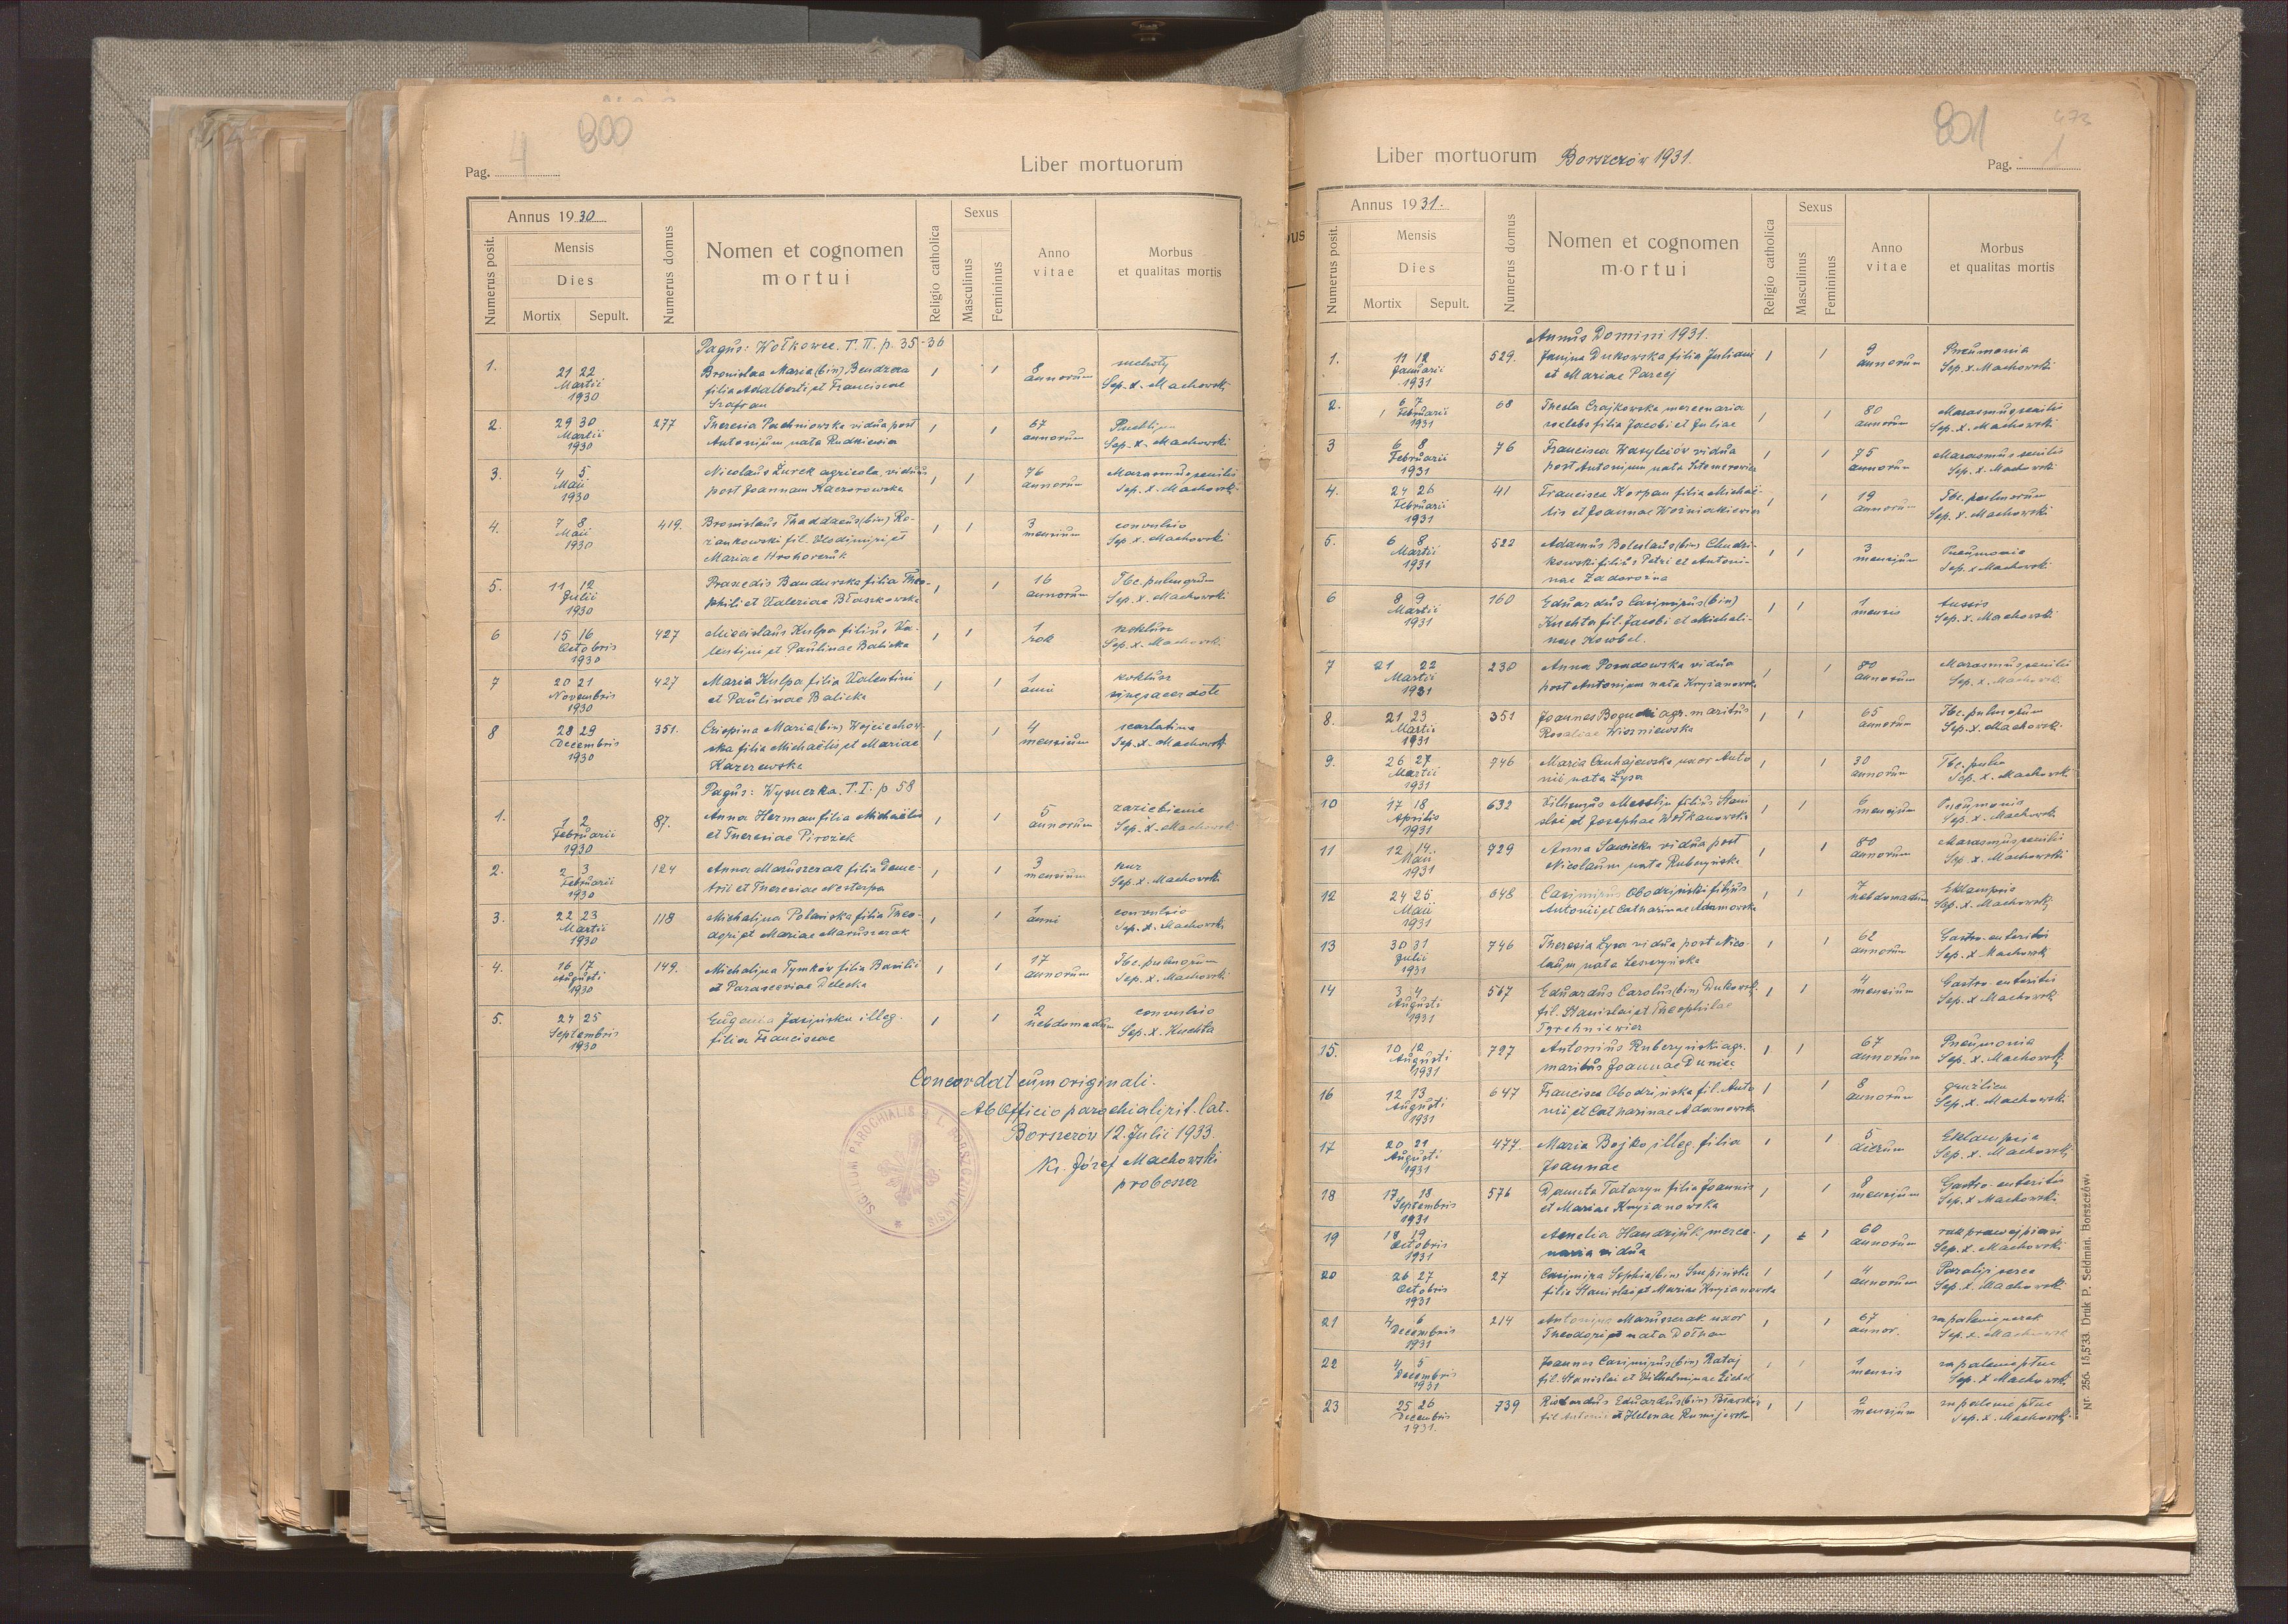 4 800
Pag. Liber mortuorum
Annus 1930
Numerus posit.
Mensis
Dies
Mortix Sepult.
Numerus domus
Nomen et cognomen
mortui
Religio catholica
Sexus
Masculinus
Femininus
Anno
vitae
Morbus
et qualitas mortis
Pagus: Wołkowce. T. II. p. 35-36
1. 21 22 Martii 1930
Bronislaa Maria (bin)
filia Adalberti et Franciscae
Szafran
1 1 8 annorum
suchoty
Sep. x. Machowski
2. 29 30 Martii 1930 277
Theresia Pachniowska vidua post
Antonium nata Rudkiewia
1 1 67 annorum
Sep. x. Machowski
3. 4 5 Maii 1930
Nicolaus Żurek agricola viduus
post Joannam Kaczorowska
1 1 76 annorum
Marasmus senilis
Sep. x. Machowski
4. 7 8 Maii 1930 419.
Bronislaus Thaddaeus (bin) Ro-
zankowski fil. Vlodimiri et
Mariae Hrohorczuk
1 1 3 mensium
convulsio
Sep. x. Machowski
5. 11 12 Julii 1930
Praxedis Bandurska filia Theo-
phili et Valeriae Błaszkowska
1 1 16 annorum
Tbc. pulmonum
Sep. x. Machowski
6 15 16 Octobris 1930 427
Miecislaus Kulpa filius Va-
lentini et Paulinae Balicka
1 1 1 rok
koklusz
Sep. x. Machowski
7 20 21 Novembris 1930 427
Maria Kulpa filia Valentini
et Paulinae Balicka
1 1 1 anni
koklusz
sine sacerdote
8 28 29 Decembris 1930 351.
Crispina Maria (bin) Wojciechow-
ska filia Michaëlis et Mariae
Karczewska
1 1 4 mensium
scarlatina
Sep. x. Machowski
Pagus: Wysuczka. T. I. p 58
1. 1 2 Februarii 1930 87.
Anna Herman filia Michaëlis
et Theresiae Pirożek
1 1 5 annorum
zaziebienie
Sep. x. Machowski
2. 2 3 Februarii 1930 124
Anna Maruszczak filia Deme-
trii et Theresiae
1 1 3 mensium
Sep. x. Machowski
3. 22 23 Martii 1930 118
Michalina Polańska filia Theo-
dori et Mariae Maruszczak
1 1 1 anni
convulsio
Sep. x. Machowski
4. 16 17 Augusti 1930 149.
Michalina Tymków filia Basilii
et Parasceviae Delecka
1 1 17 annorum
Tbc. pulmonum
Sep. x. Machowski
5. 24 25 Septembris 1930
Eugenia Jasińska illeg.
filia Franciscae
1 1 2 hebdomadum
convulsio
Sep. x. Kuchta
Concordat cum originali.
Ab Officio parochiali rit. lat.
Borszczów 12. Julii 1933.
Ks. Józef Machowski
proboszcz
SIGILLUM PAROCHIALIS R. L. BORSZCZOVIENSIS
801 473
Liber mortuorum Borszczów 1931.
Pag. 1
Annus 1931.
Numerus posit.
Mensis
Dies
Mortix Sepult.
Numerus domus
Nomen et cognomen
mortui
Religio catholica
Sexus
Masculinus
Femininus
Anno
vitae
Morbus
et qualitas mortis
Annus Domini 1931.
1. 11 12 Januarii 1931 529.
Janina Dukowska filia Juliani
et Mariae Parcej
1 1 9 annorum
Pneumonia
Sep. x. Machowski
2. 6 7 Februarii 1931 68
Thecla Czajkowska mercenaria
coelebs filia Jacobi et Juliae
1 1 80 annorum
Marasmus senilis
Sep. x. Machowski
3 6 8 Februarii 1931 76
Francisca Wasyleiów vidua
post Antonium nata
1 1 75 annorum
Marasmus senilis
Sep. x. Machowski
4. 24 26 Februarii 1931 41
Francisca Korpan filia Michaë-
lis et Joannae Woźniakiewicz
1 1 19 annorum
Tbc. pulmonum
Sep. x. Machowski
5. 6 8 Martii 1931 522
Adamus Boleslaus (bin) Chudzi-
kowski filius Petri et Antoni-
nae Zadorożna
1 1 3 mensium
Pneumonia
Sep. x. Machowski
6 8 9 Martii 1931 160
Eduardus Casimirus (bin)
Kuchta fil. Jacobi et Michali-
nae Kowbel.
1 1 1 mensis
tussis
Sep. x. Machowski
7 21 22 Martii 1931 230
Anna Posadowska vidua
post Antonium nata Kryżanowska
1 1 80 annorum
Marasmus senilis
Sep. x. Machowski
8. 21 23 Martii 1931 351
Joannes Bogucki agr. maritus
Rosaliae Wiszniewska
1 1 65 annorum
Tbc. pulmonum
Sep. x. Machowski
9. 26 27 Martii 1931 746
Maria Czuhajewska uxor Anto
nii nata Lysa
1 1 30 annorum
Tbc. pulm
Sep. x. Machowski
10 17 18 Aprilis 1931 632
Vilhelmus filius Stani
slai et Josephae Wołkanowska
1 1 6 mensium
Pneumonia
Sep. x. Machowski
11 12 14. Maii 1931 729
Anna Sawicka vidua post
Nicolaum nata Rubczyńska
1 1 80 annorum
Marasmus senilis
Sep. x. Machowski
12 24 25 Maii 1931 648
Casimirus Obodziński filius
Antonii et Catharinae Adamowska
1 1 7 hebdomadum
Eklampsis
Sep. x. Machowski
13 30 31 Julii 1931 746
Theresia Lysa vidua post Nico-
laum nata Leszczyńska
1 1 62 annorum
Gastro-enteritis
Sep. x Machowski
14 3 4 Augusti 1931 567
Eduardus Carolus (bin) Dukowski
fil. Stanislai et Theophilae
Tyrchniewicz
1 1 4 mensium
Gastro-enteritis
Sep. x Machowski
15. 10 12 Augusti 1931 727
Antonius Rubczyński agr.
maritus Joannae Duniec
1 1 67 annorum
Pneumonia
Sep. x. Machowski
16 12 13 Augusti 1931 647
Francisca Obodzińska fil. Anto
nii et Catharinae Adamowska
1 1 8 annorum
gruźlica
Sep. x. Machowski
17 20 21 Augusti 1931 477.
Maria Bojko illeg filia
Joannae
1 1 5 dierum
Eklampsia
Sep. x. Machowski
18 17 18 Septembris 1931 576
Danuta Tataryn filia Joannis
et Mariae Kryżanowska
1 1 8 mensium
Gastro-enteritis
Sep. x Machowski
19 18 19 Octobris 1931
Amelia Handziuk merce-
naria vidua
1 1 60 annorum
rak prawej piersi
Sep. x. Machowski
20 26 27 Octobris 1931 27
Casimira Sophia (bin) Skupińska
filia Stanislai et Mariae Kryżanowska
1 1 4 annorum
Paraliż serca
Sep. x. Machowski
21 4 6 Decembris 1931 214
Antonina Maruszczak uxor
Theodori nata Dołhan
1 1 67 annor.
zapalenie nerek
Sep. x. Machowski
22 4 5 Decembris 1931
Joannes Casimirus (bin) Rataj
fil. Stanislai et Vilhelminae Eichel
1 1 1 mensis
zapalenie płuc
Sep. x Machowski
23 25 26 Decembris 1931. 739
Richardus Eduardus (bin) Błaszków
fil Antonii et Helenae
1 1 2 mensium
zapalenie płuc
Sep. x. Machowski
Nr. 256. 15,5/33. Druk P. Seidman. Borszczów.